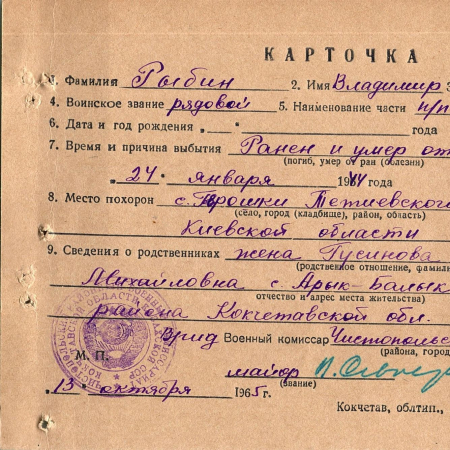 КАРТОЧКА
1. Фамилия Рыбин 2. Имя Владимир 3
4. Воинское звание рядовой 5. Наименование части п/п
6. Дата и год рождения „ - “ года
7. Время и причина выбытия Ранен и умер от
(погиб, умер от ран (болезни)
„ 24 “ января 1944 года
8. Место похорон с. Трошки Тетиевского
(село, город (кладбище), район, область)
Киевской области
9. Сведения о родственниках жена Гусинова
(родственное отношение, фамили
Михайловна с. Арык-Балык
отчество и адрес места жительства)
района Кокчетавской обл.
Врид Военный комиссар Чистопольс
(района, город
М. П.
майор
(звание)
13 - октября 1965 г.
Кокчетав, облтип.,